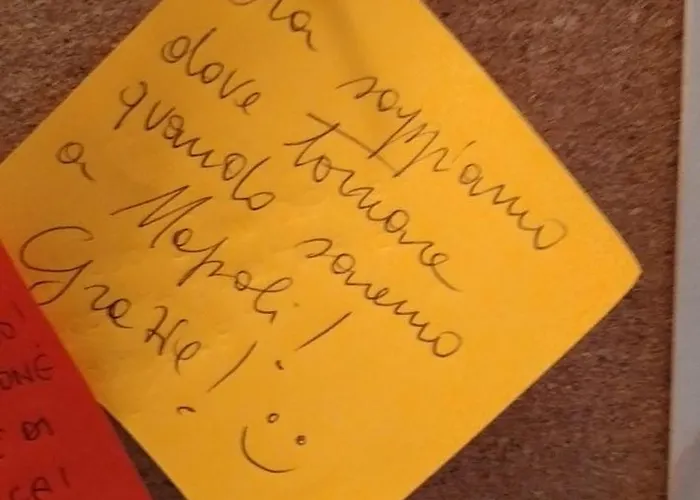 Ora sappiamo
dove tornare
quando saremo
a Napoli!
Grazie!